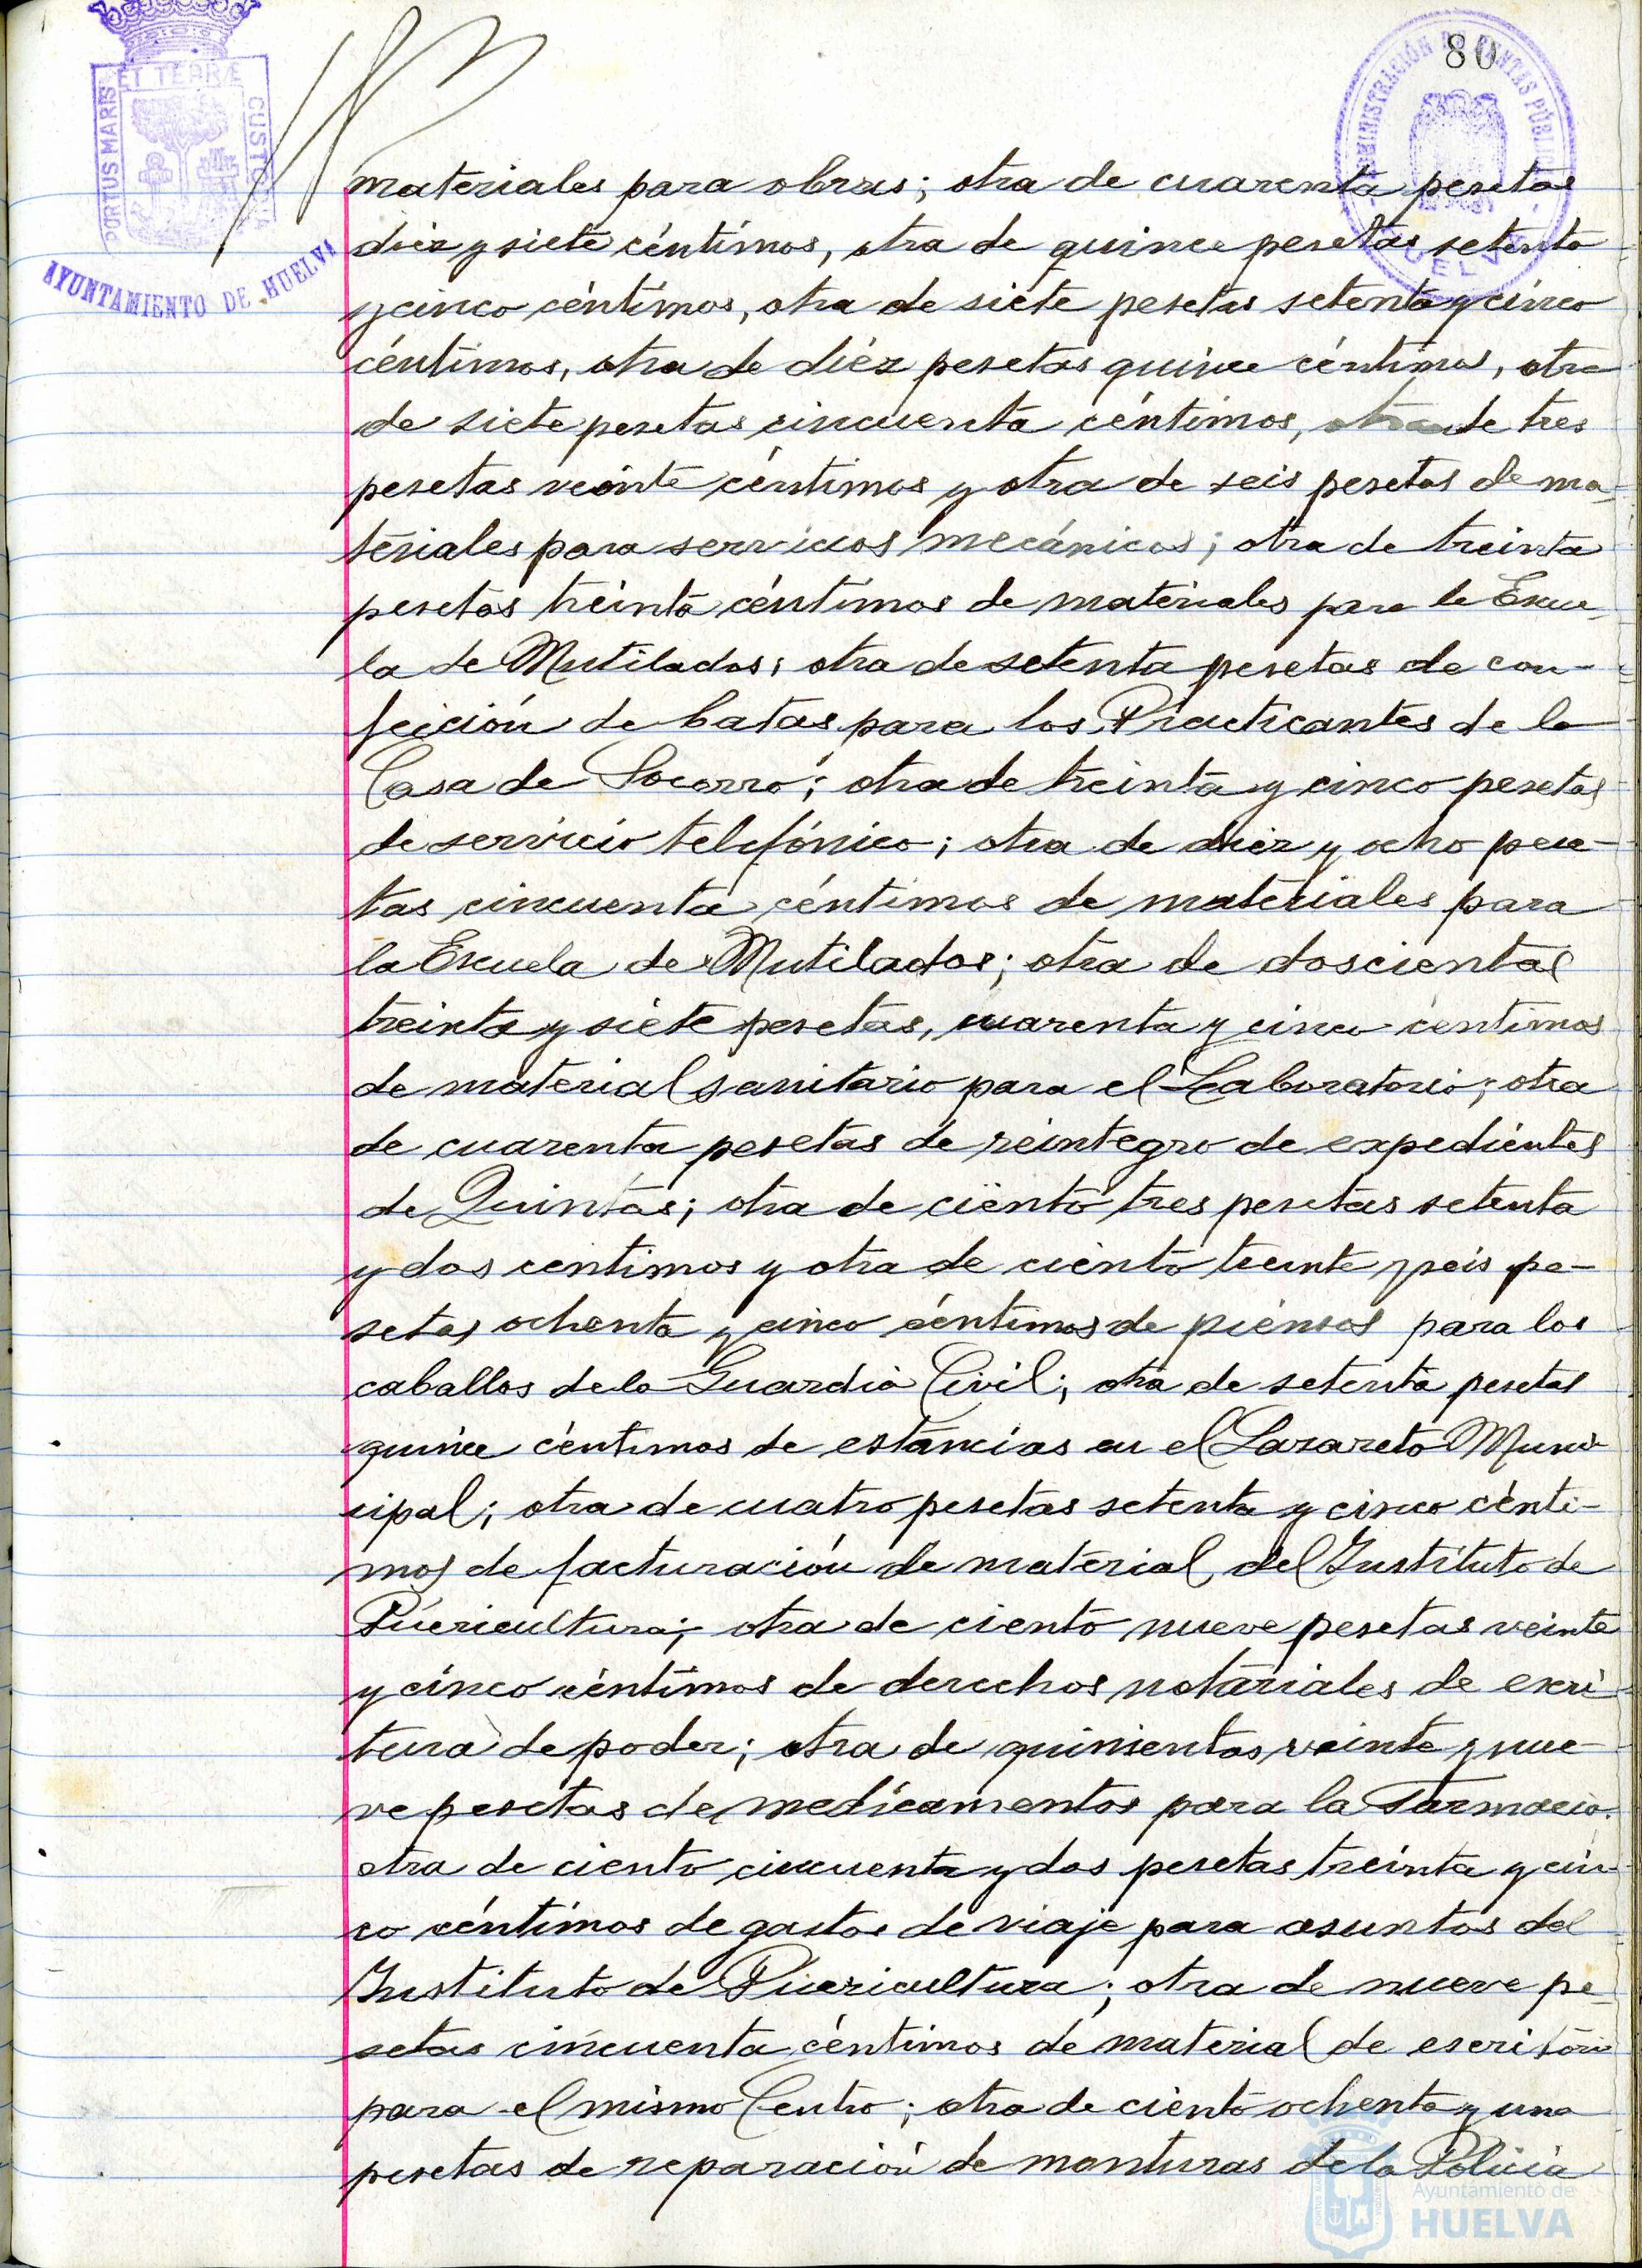 80
ET TERRÆ
PORTUS MARIS
CUSTODIA
AYUNTAMIENTO DE HUELVA
ADMINISTRACIÓN DE RENTAS PÚBLICAS
HUELVA
materiales para obras; otra de cuarenta pesetas
diez y siete céntimos, otra de quince pesetas setenta
y cinco céntimos, otra de siete pesetas setenta y cinco
céntimos, otra de diéz pesetas quince céntimos, otra
de siete pesetas cincuenta céntimos, otra de tres
pesetas veinte céntimos y otra de seis pesetas de ma-
teriales para servicios mecánicos; otra de treinta
pesetas treinta céntimos de materiales para la Escue-
la de Mutilados; otra de setenta pesetas de con-
feición de batas para los Practicantes de la
Casa de Socorro; otra de treinta y cinco pesetas
de servicio telefónico; otra de diez y ocho pese-
tas cincuenta céntimos de materiales para
la Escuela de Mutilados; otra de doscientas
treinta y siete pesetas, cuarenta y cinco céntimos
de material sanitario para el Laboratorio; otra
de cuarenta pesetas de reintegro de expedientes
de Quintas; otra de ciento tres pesetas setenta
y dos centimos y otra de ciento treinta y seis pe-
setas ochenta y cinco céntimos de piensos para los
caballos de la Guardia Civil; otra de setenta pesetas
quince céntimos de estancias en el Lazareto Muni-
cipal; otra de cuatro pesetas setenta y cinco cénti-
mos de facturación de material del Instituto de
Puericultura; otra de ciento nueve pesetas veinte
y cinco céntimos de derechos notariales de escri-
tura de poder; otra de quinientas veinte y nue-
ve pesetas de medicamentos para la Farmacia.
otra de ciento cincuenta y dos pesetas treinta y cin-
co céntimos de gastos de viaje para asuntos del
Instituto de Puericultura; otra de nueve pe-
setas cincuenta céntimos de material de escritorio
para el mismo Centro; otra de ciento ochenta y una
pesetas de reparación de monturas de la Policía
Ayuntamiento de
HUELVA